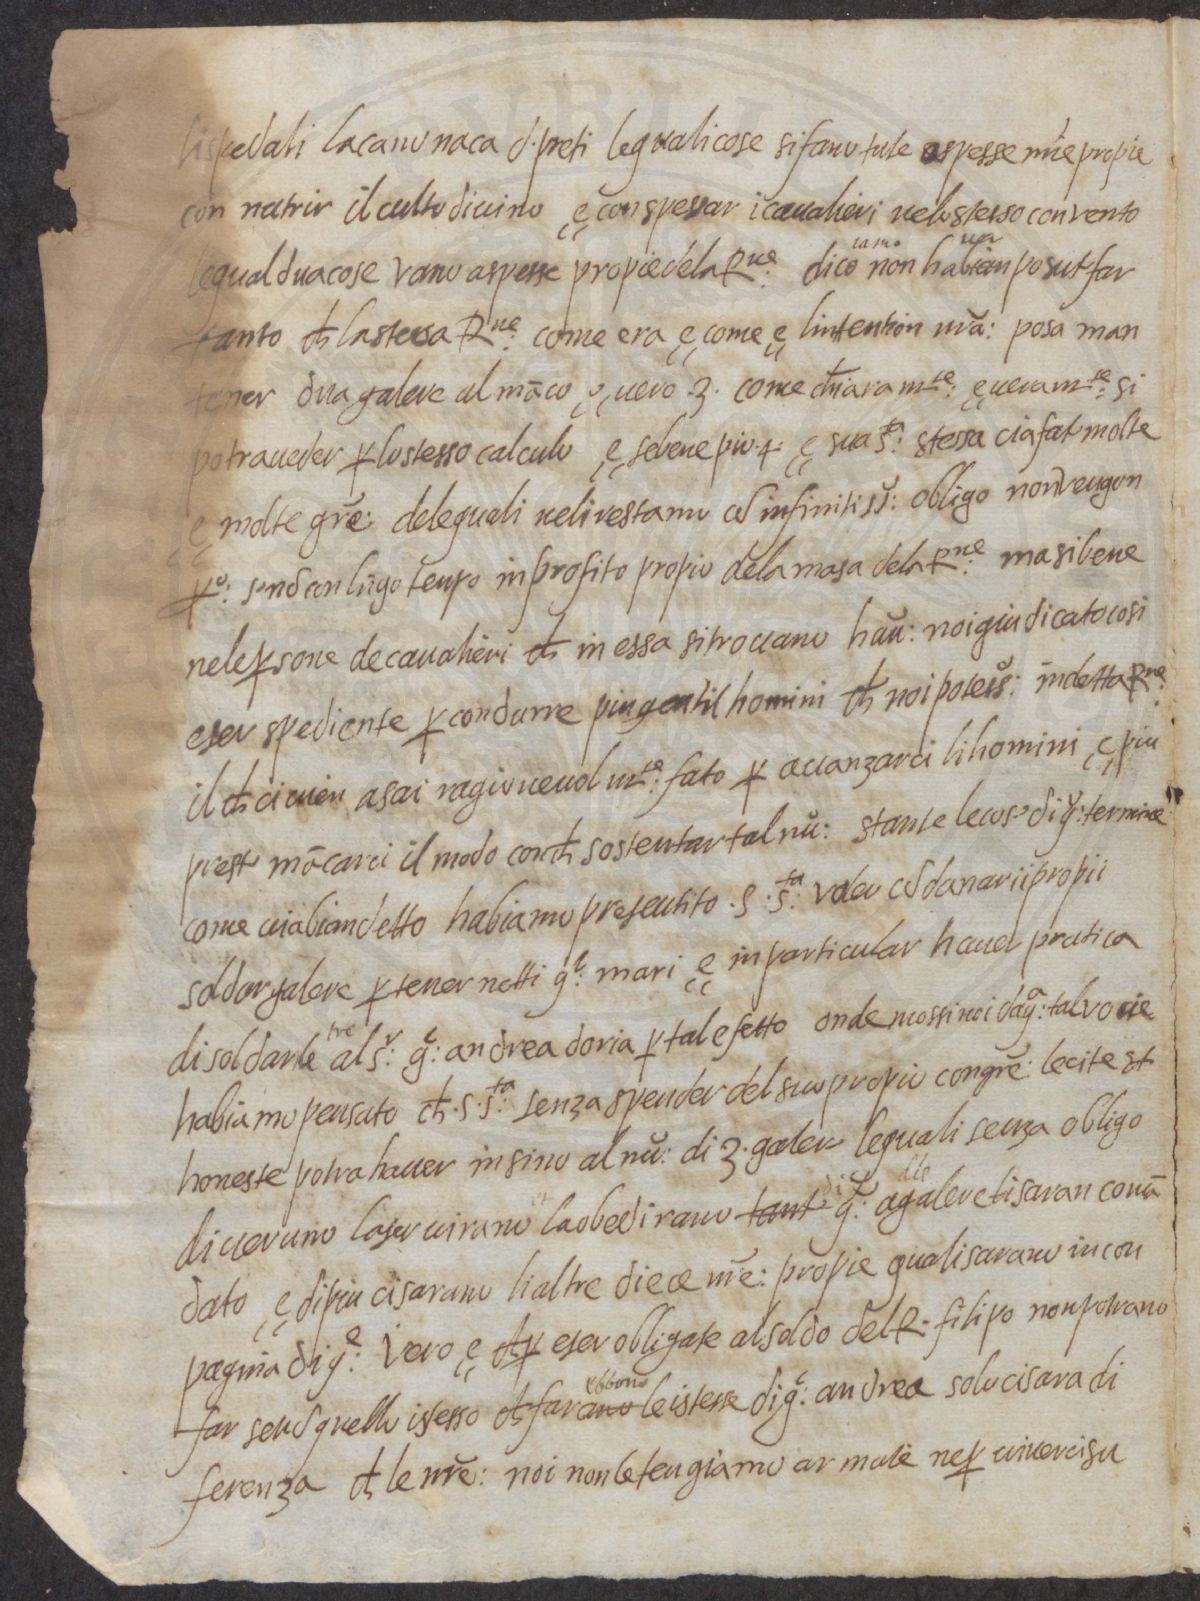 lispedali lacanonaca d. preti lequali cose si fano tute aspesse nr̃e propie
con nutrir il culto diuino ę conspessar i caualieri nelo stesso convento
lequal dua cose vano aspesse propie dela Rne: dico non habian posut far
tanto ch̃ la stessa Rne: come era ę come ę lintention nr̃a: posa man
tener dua galere al mãco ouero .3. come chiaramte: ę ueramte: si
potra ueder ꝑ lo stesso calculo ę sebene piu .4. ę sua Sta: stessa cia fat molte
ę molte grẽ: delequali neli restamo cõ infinitiss: obligo non vengon
ꝑo: senõ con lũgo tempo in profito propio dela masa dela Rne: ma si bene
nele ꝑsone de caualieri ch̃ in essa si trouano haũ: noi giudicato cosi
eser spediente ꝑ condurre piu gentilhomini ch̃ noi poteũ: in detta Rne:
il ch̃ ci uien asai ragioneuolmte: fato ꝑ auanzarci li homini ę piu
prest mãcarci il modo con ch̃ sostentar tal nũ: stante le cose di qr: termine
come uiabian detto habiamo presentito .S. Sta: voler cõ danarii propii
soldar galere ꝑ tener netti qi: mari ę in particular hauer pratica
di soldarle tre al Sr: g: andrea doria ꝑ tal efetto onde mossi noi da qa: tal vocie
habiamo pensato ch̃ .S. Sta: senza spender del suo propio con grẽ: lecite et
honeste potra hauer insino al nũ: di 3. galere lequali senza obligo
di ueruno la seruirano la obedirano
dato ę di piu ci sarano li altre diece nr̃e: propie quali sarano in con
pagnia di qe: Vero ę ch̃ ꝑ eser obligate al soldo del R. filipo non potrano
far senõ quello istesso ch̃ farebbono le istesse di g: andrea solo ci sara di
ferenza ch̃ le nr̃e: noi non le tengiamo armate ne ꝑ uiuerci su